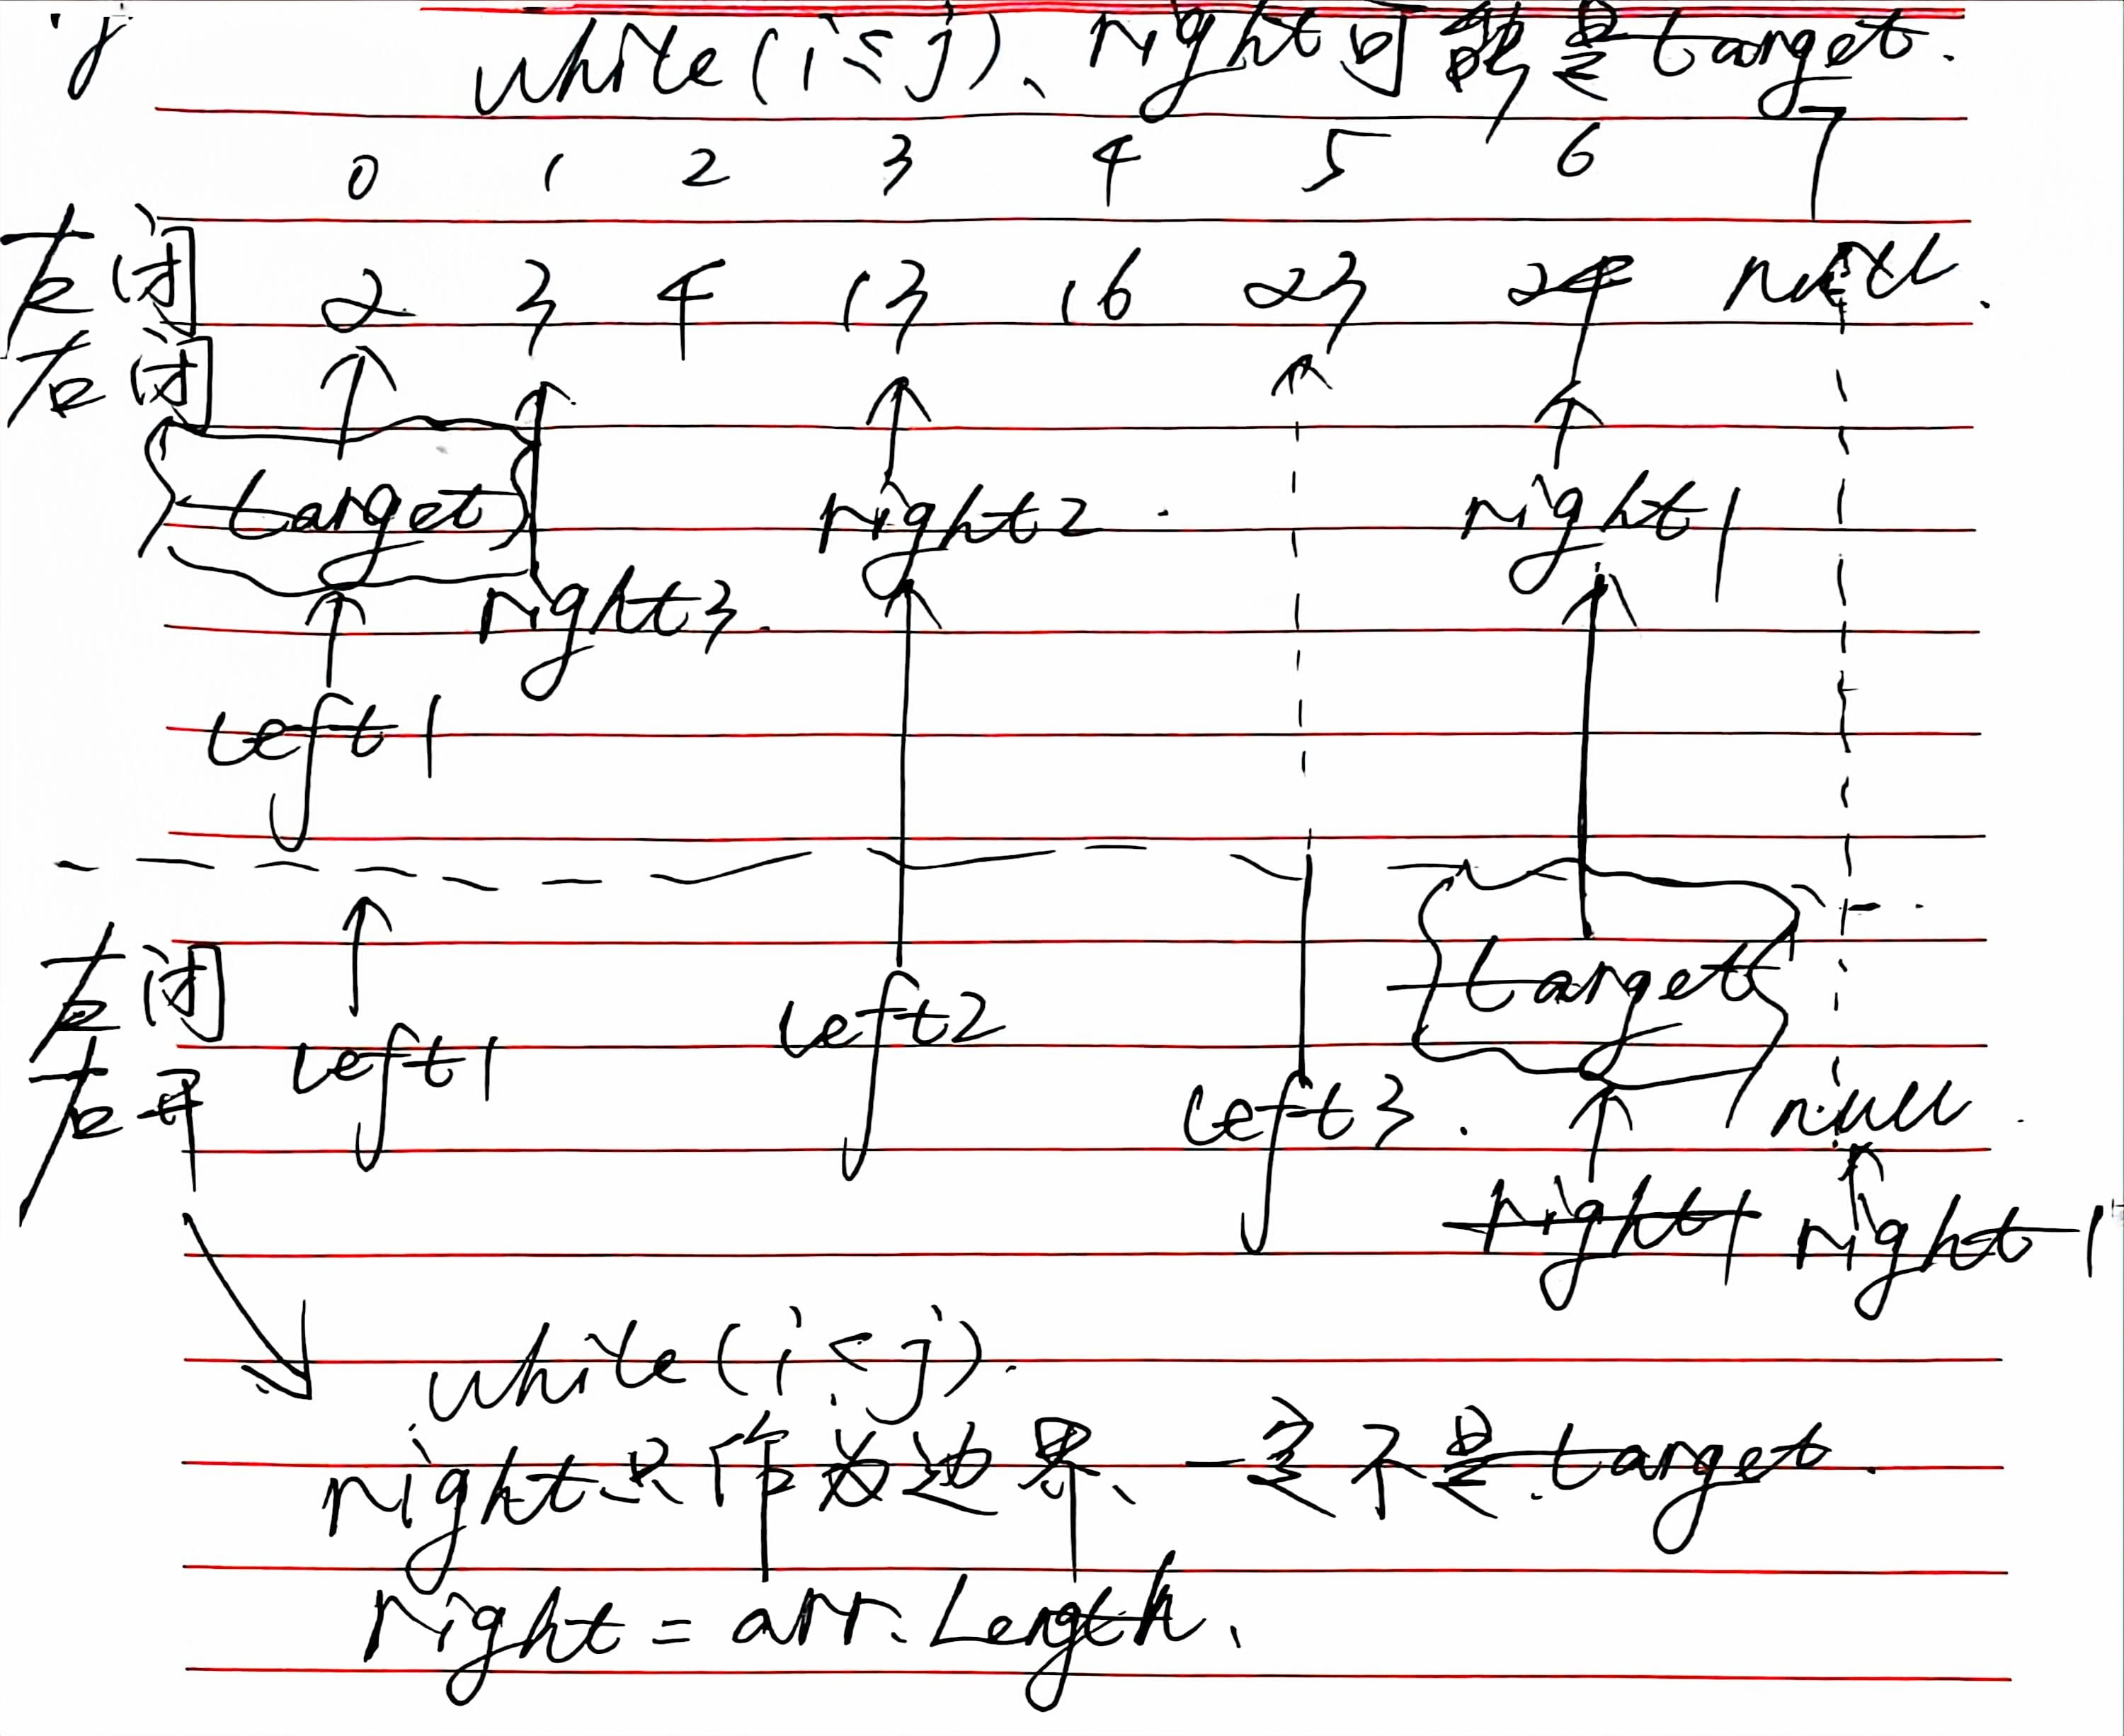 j while(i≤j)、right可能是target.
0 1 2 3 4 5 6 7
左闭 2 3 4 13 16 23 24 null.
右闭
target right2. right1
right3.
left1
左闭 target
left2
右开 left1 left3. null.
right1 right1
while(i<j).
right只作为边界、一定不是target.
right = arr.Length.